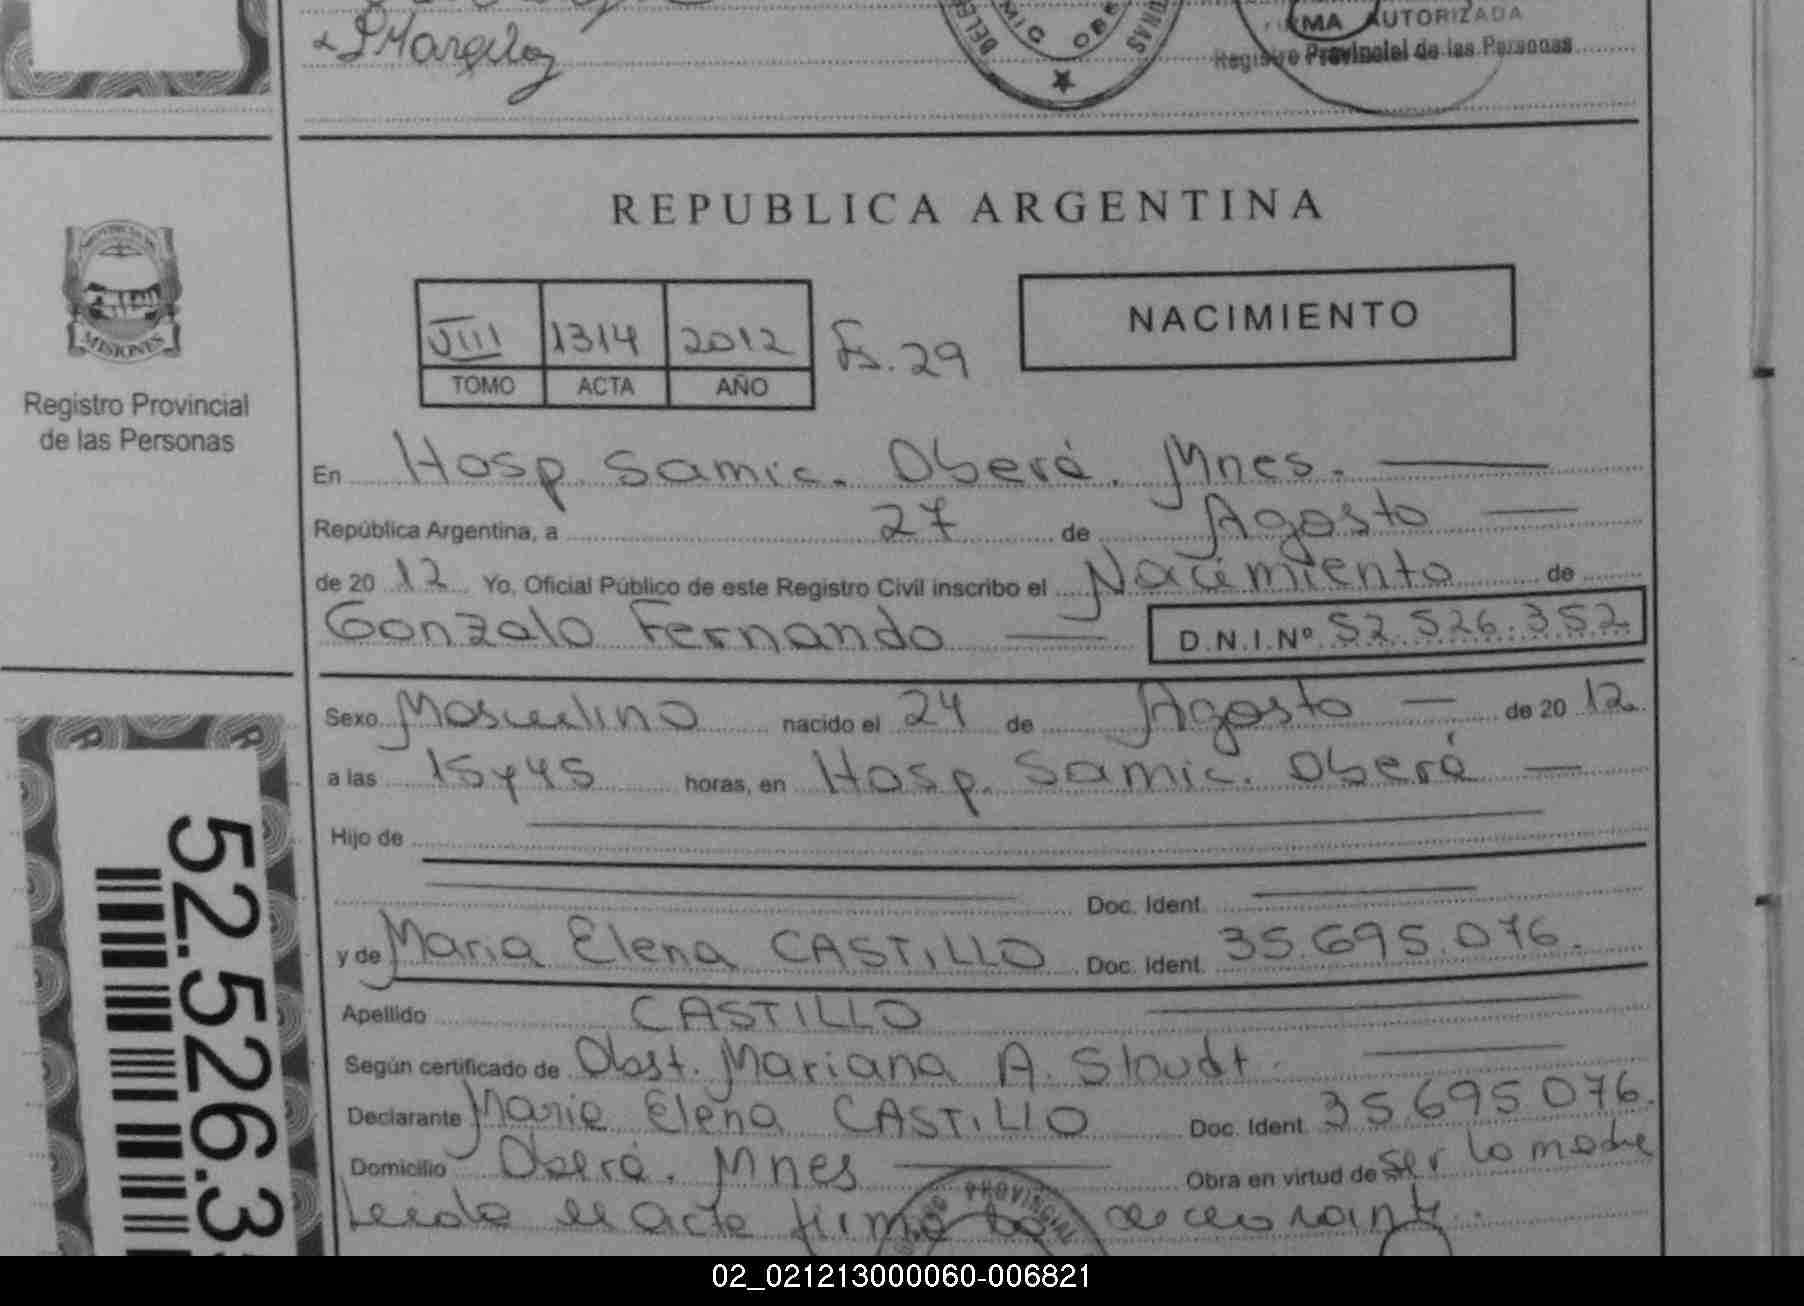 FIRMA AUTORIZADA
Registro Provincial de las Personas
REPUBLICA ARGENTINA
NACIMIENTO
VIII 1314 2012 Fs. 29
TOMO ACTA AÑO
MISIONES
Registro Provincial
de las Personas
En Hosp. Samic. Oberá. Mnes.
República Argentina, a 27 de Agosto
de 20 12 Yo, Oficial Público de este Registro Civil inscribo el Nacimiento de
Gonzalo Fernando D.N.I.Nº 52.526.352
Sexo Masculino nacido el 24 de Agosto de 20 12
a las 15 y 45 horas, en Hosp. Samic. Oberá
Hijo de
Doc. Ident.
y de Maria Elena CASTILLO Doc. Ident. 35.695.076.
Apellido CASTILLO
Según certificado de Obst. Mariana A. Stoudt.
Declarante Maria Elena CASTILLO Doc. Ident. 35.695.076.
Domicilio Oberá. Mnes Obra en virtud de ser la madre
Leida el acta firma la declarante.
52.526.3
02_021213000060-006821